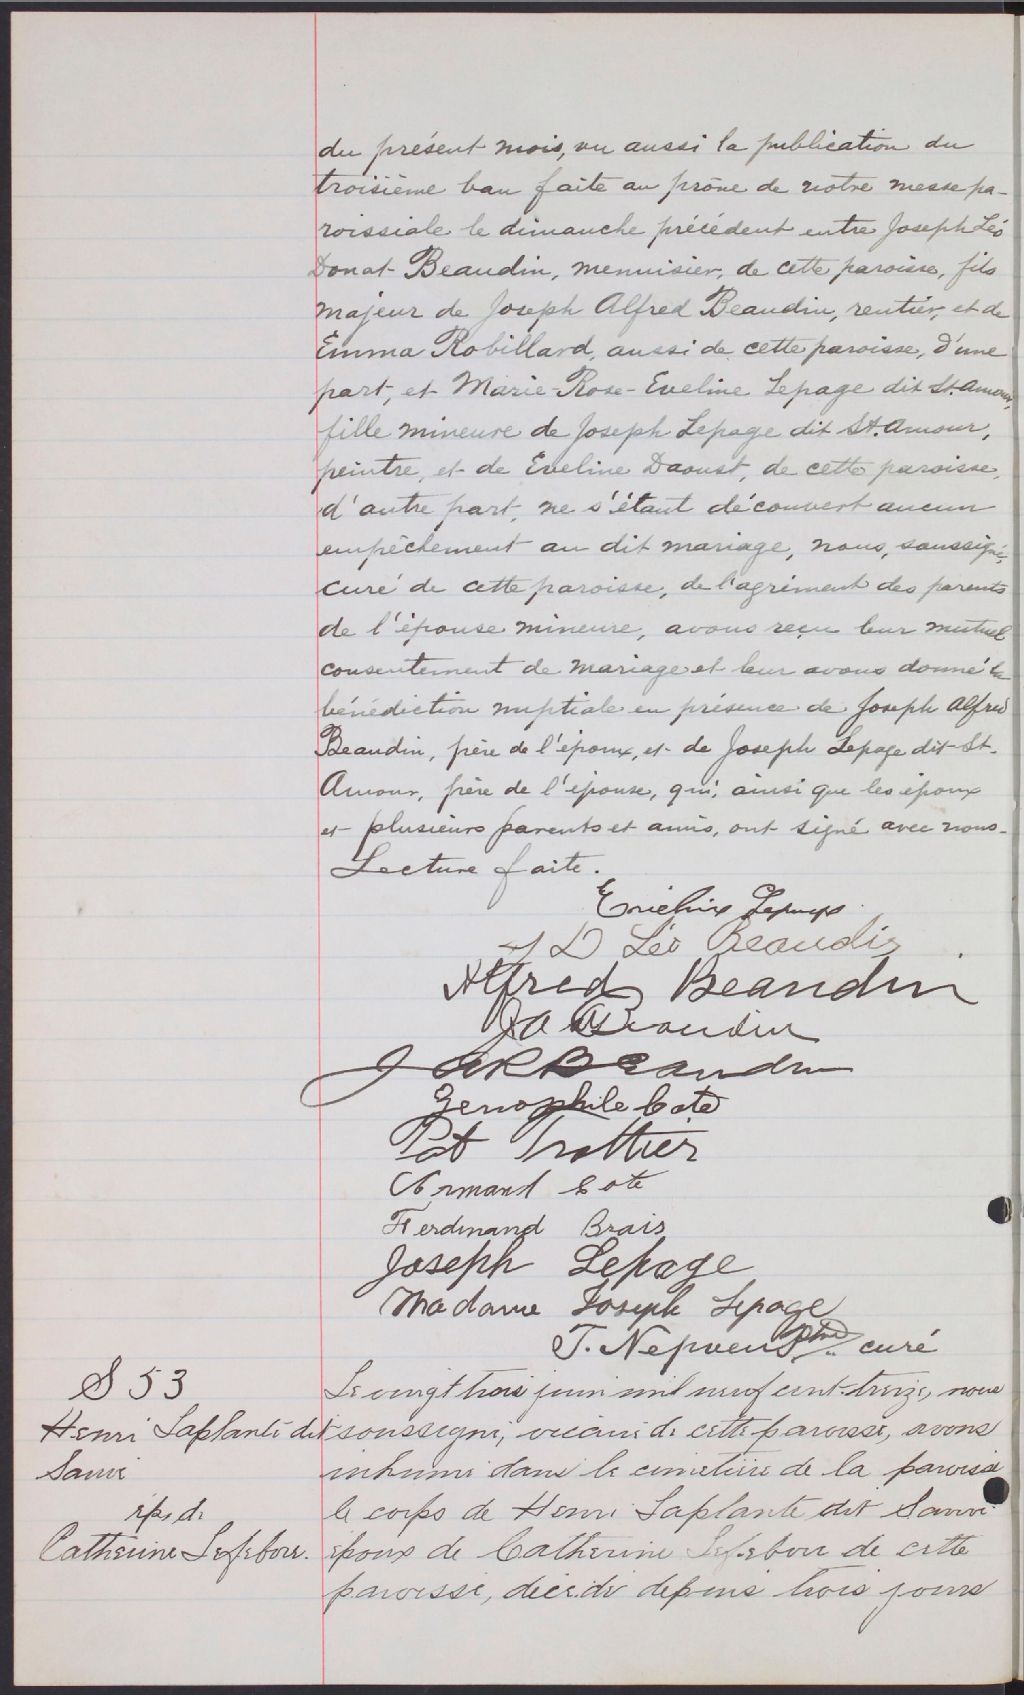 du présent mois, vu aussi la publication du
troisième ban faite au prône de notre messe pa-
roissiale le dimanche précédent entre Joseph Léo
Donat Beaudin, menuisier, de cette paroisse, fils
majeur de Joseph Alfred Beaudin, rentier, et de
Emma Robillard, aussi de cette paroisse, d'une
part, et Marie-Rose-Eveline Lepage dit St. Amour,
fille mineure de Joseph Lepage dit St. Amour,
peintre, et de Eveline Daoust, de cette paroisse,
d'autre part, ne s'étant découvert aucun
empêchement au dit mariage, nous, soussigné,
curé de cette paroisse, de l'agrément des parents
de l'épouse mineure, avons reçu leur mutuel
consentement de mariage et leur avons donné la
bénédiction nuptiale en présence de Joseph Alfred
Beaudin, père de l'époux, et de Joseph Lepage dit St.
Amour, père de l'épouse, qui, ainsi que les époux
et plusieurs parents et amis, ont signé avec nous.
Lecture faite.
Lepage
J D Léo Beaudin
Alfred Beaudin
J A Beaudin
Beaudin
Zenophile Coté
Pat Trottier
Armand Coté
Ferdinand Brais
Joseph Lepage
Madame Joseph Lepage
T. Nepveu Ptre curé
S 53
Henri Laplante dit
Sauvé
éps de
Catherine Lefebvre.
Le vingt trois juin mil neuf cent-treize, nous
soussigné, vicaire de cette paroisse, avons
inhumé dans le cimetière de la paroisse
le corps de Henri Laplante dit Sauvé
époux de Catherine Lefebvre de cette
paroisse, décédé depuis trois jours